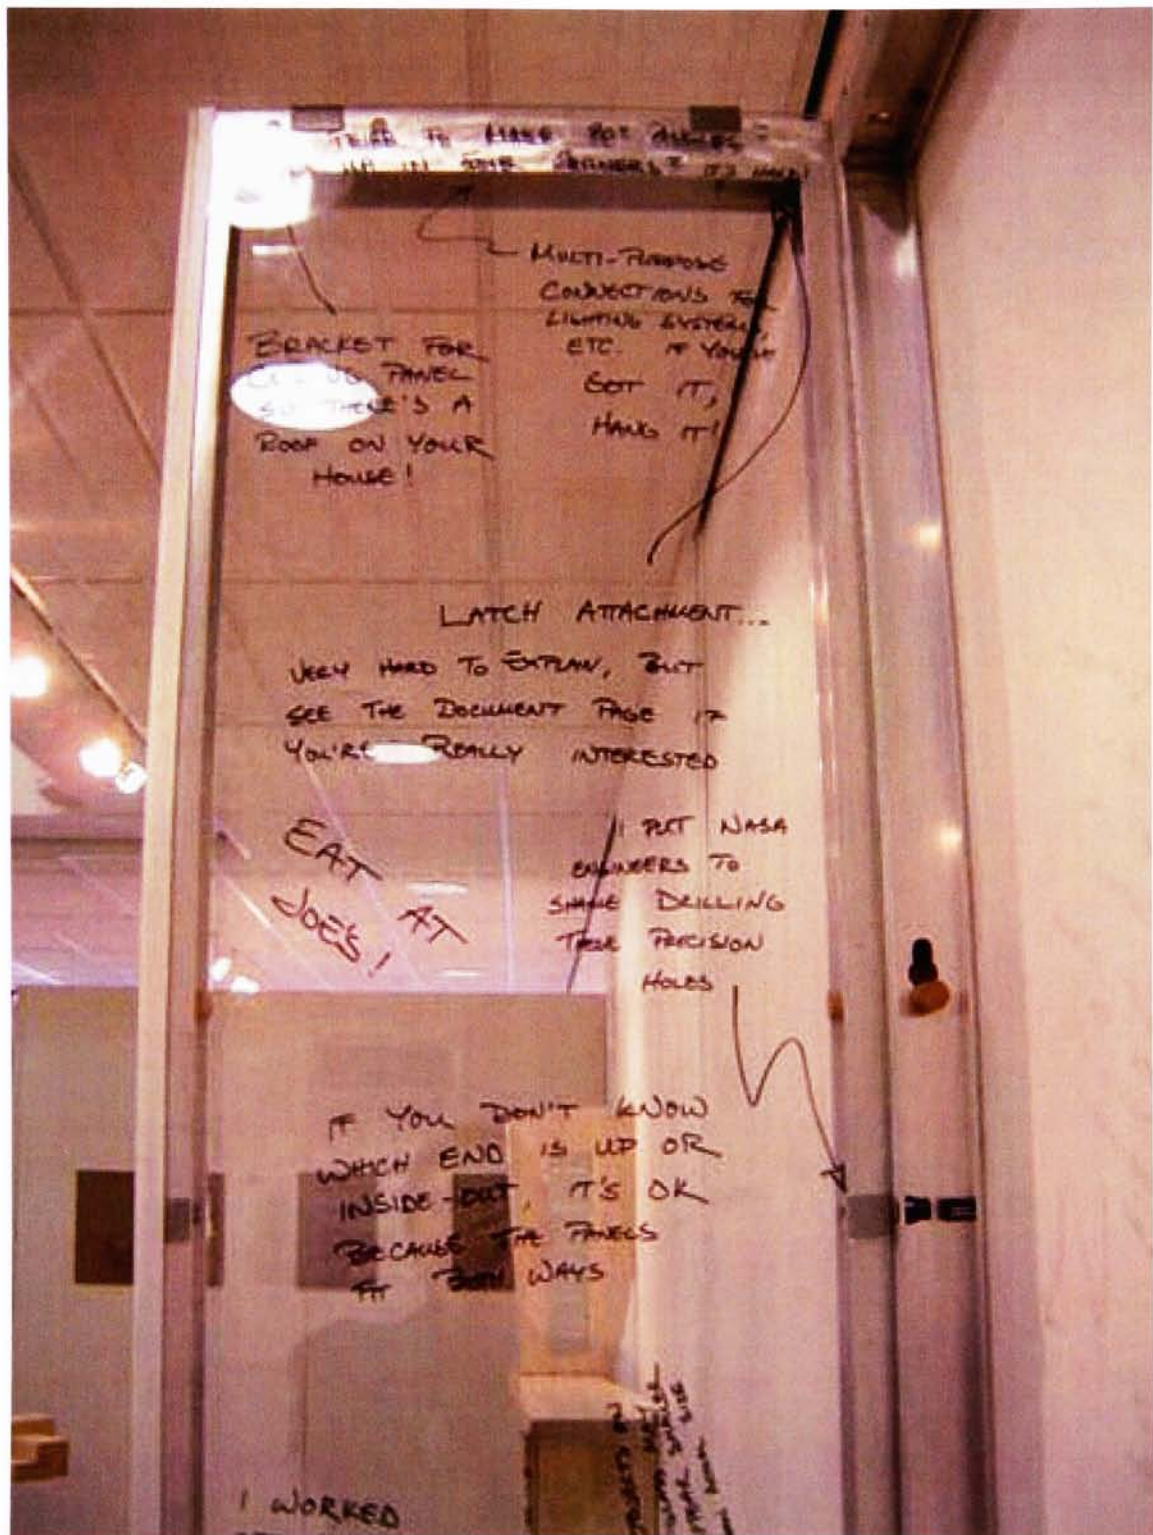 TO MAKE 90° ANGLES
IN CORNERS? IT'S HARD!
MULTI-PURPOSE
CONNECTIONS FOR
LIGHTING SYSTEMS,
ETC. IF YOU'VE
GOT IT,
HANG IT!
BRACKET FOR
PANEL
SO THERE'S A
ROOF ON YOUR
HOUSE!
LATCH ATTACHMENT...
VERY HARD TO EXPLAIN, BUT
SEE THE DOCUMENT PAGE IF
YOU'RE REALLY INTERESTED
EAT AT
JOE'S!
I PUT NASA
ENGINEERS TO
SHAME DRILLING
THESE PRECISION
HOLES
IF YOU DON'T KNOW
WHICH END IS UP OR
INSIDE-OUT, IT'S OK
BECAUSE THE PANELS
FIT BOTH WAYS
I WORKED